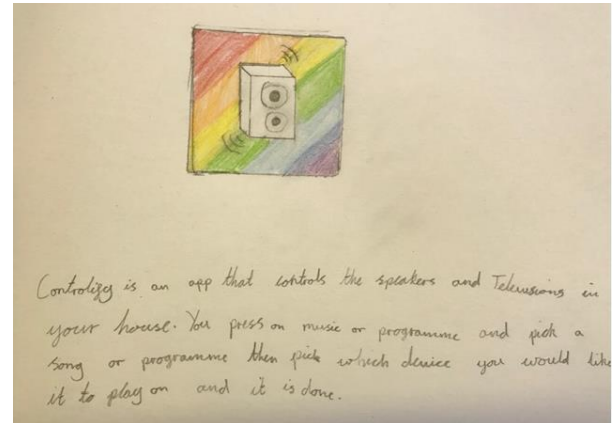 Controlify is an app that controls the speakers and Televisions in
your house. You press on music or programme and pick a
song or programme then pick which device you would like
it to play on and it is done.